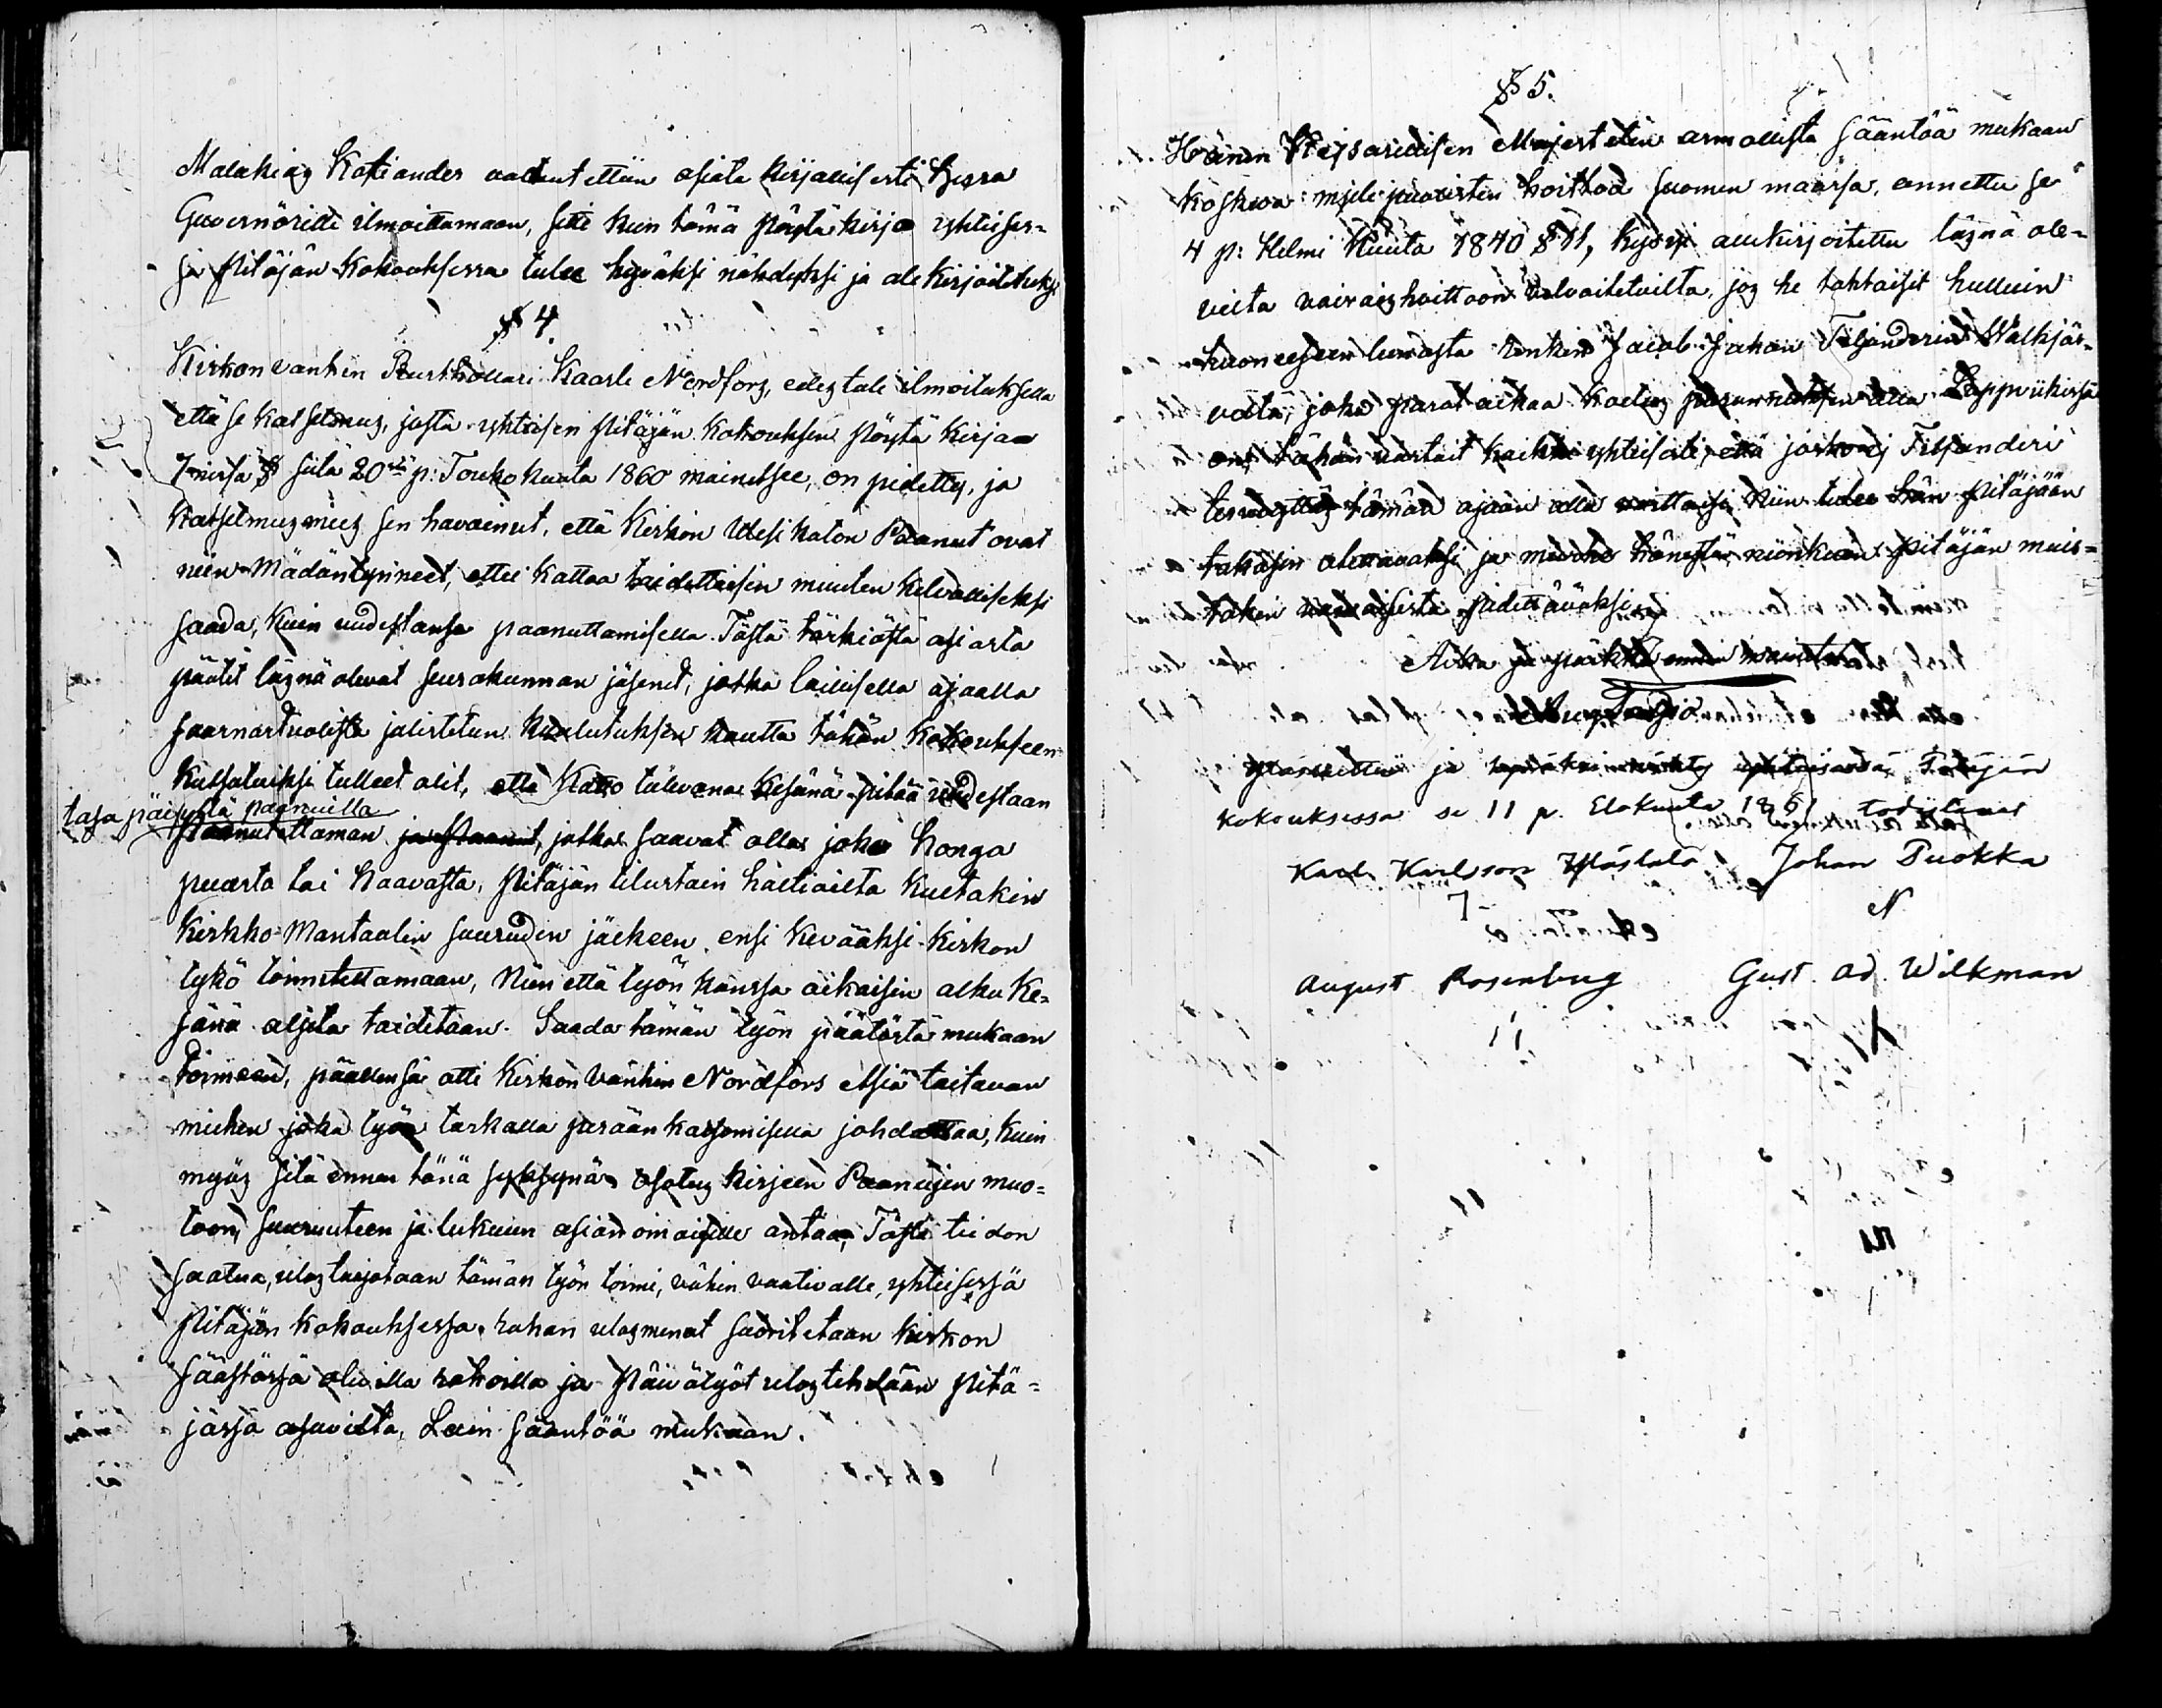 Malakias Kotiander valtuutettiin asiata kirjallisesti Herra
Guvernörille ilmoittamaan, sitte kun tämä Pöytäkirja yhteises-
sä Pitäjän Kokouksessa tulee hyväksi nähdyksi ja ale kirjoitetuksi
§ 4.
Kirkonvanhin Ruskhollari Kaarle Nordfors, edestuli ilmoituksella
että se katselmus, josta yhteisen Pitäjän Kokouksen Pöytä kirjaa
7nessä § siitä 20stä p: Toukokuuta 1860 mainitsee, on pidetty, ja
Katselmusmies sen havainut, että Kirkon Vesikaton Paanut ovat
niin Mädäntyineet, ettei kattoa taidettaisin muuten kelvolliseksi
saada, kuin uudestansa paanuttamisella. Tästä tärkiästä asiasta
päätit läsnä olevat seurakunnan jäsenet, jotka laillisella ajaalla
saarnastuolista julistetun kuulutuksen kautta tähän Kokoukseen
kutsutuiksi tulleet olit, että Katto tulevana kesänä pitää uudestaan
tasapäisyltä paanuilla
Paanutettaman ja Paanut, jotka saavat olla joko honga
puusta tai haavasta, Pitäjän tilustain haltioilta kultakin
Kirkko-Mantaalin suuruden jäkeen ensi kevääksi Kirkon
tykö toimitettamaan, Niin että työn kanssa aikaisin alku Ke-
sänä aljeta taidetaan. Saada tämän työn päätöstä mukaan
toimeen, päällensä otti Kirkon Vanhin Nordfors etsiä taitavan
miehen joka työn tarkalla perään katsomisella johdattaa, kuin
myös sitä ennen tänä syksynä osotus kirjeen Paanujen muo-
toon, suuruuteen ja lukuun asianomaisille antaa, Tästä tiedon
saatua, ulostarjotaan tämän työn toimi, vähin vaativalle, yhteisessä
Pitäjän kokouksessa. rahan ulosmenot suoritetaan kirkon
säästössä olevilla rahoilla ja Päivätyöt ulostehdään Pitä-
jässä asuvilta, Lain sääntöä mukaan.
§ 5.
Hänen Keisarillisen Majestetin armollista sääntöä mukaan
koskeva mieli puolisten hoittoa Suomen maassa, annettu se
4 p: Helmi Kuuta 1840 § 11, kysyi allekirjoitettu läsnä ole-
vilta vaivaishoittoon velvoitetuilta, jos he tahtoisit hulluin
huoneeseen luvasta renkin Jacob Johan Tiljanderin Walkjär-
veltä, joka parat aikaa Kadus parannuksen alla Lappvikissä
on, tähän vastait kaikki yhteisesti, että joskoej Tiljanderi
terveyttäs tämän ajaan alla voittaisi, Niin tulee hän Pitäjään
takasin otettavaksi ja murhe hänestä niinkuin Pitäjän muis-
takin pidettäväksi.
Aika ja paikka ennen mainittu
Aug. Tarjio
Ylösluettu ja hyväksi nähty yhteisessä Pitäjän
kokouksessa se 11 p. Elokuuta 1861 todistavat
Karl Karlsson Ylöstalo Johan Puokka
August Rosenberg Gust. Ad. Wilkman